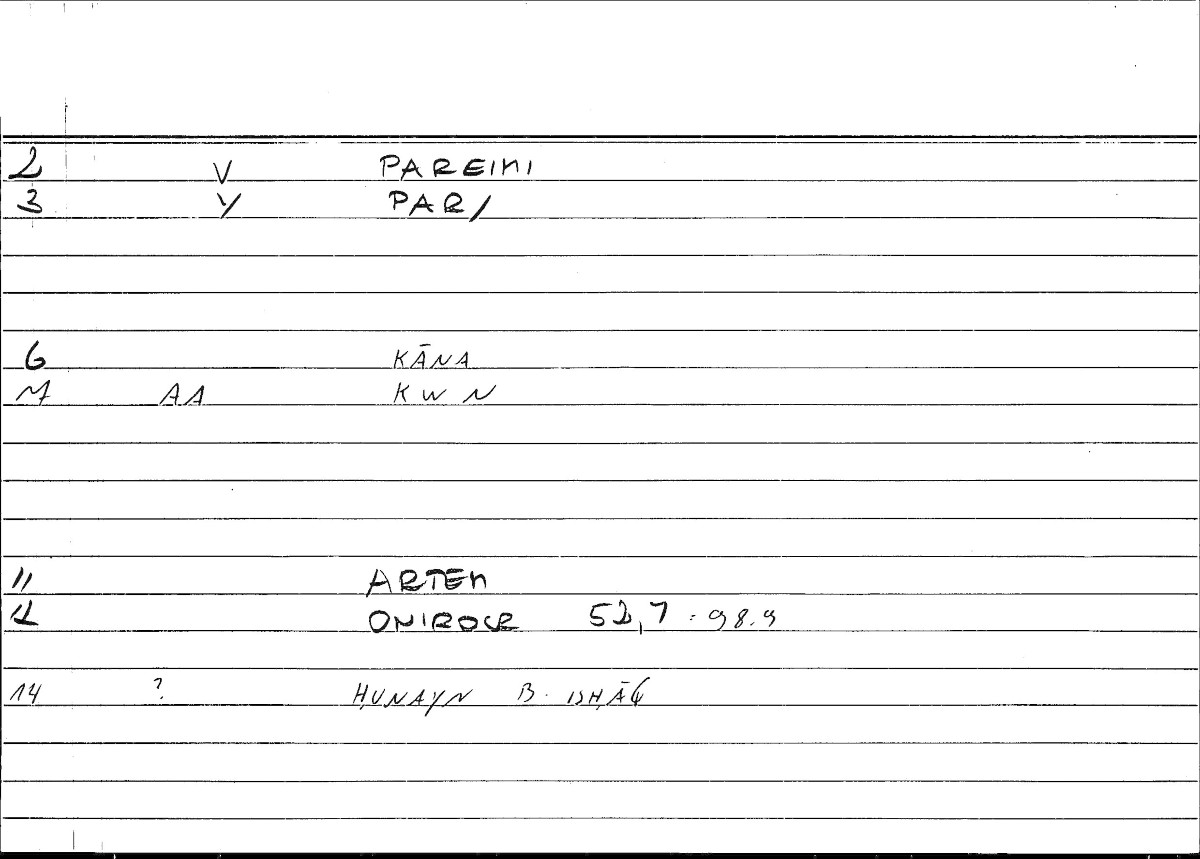 2 V PAREIMI
3 Y PAR/
6 KĀNA
7 AA KWN
11 ARTEM
12 ONIROCR 52,7 : 98.9
14 ? ḤUNAYN B. ISḤĀQ